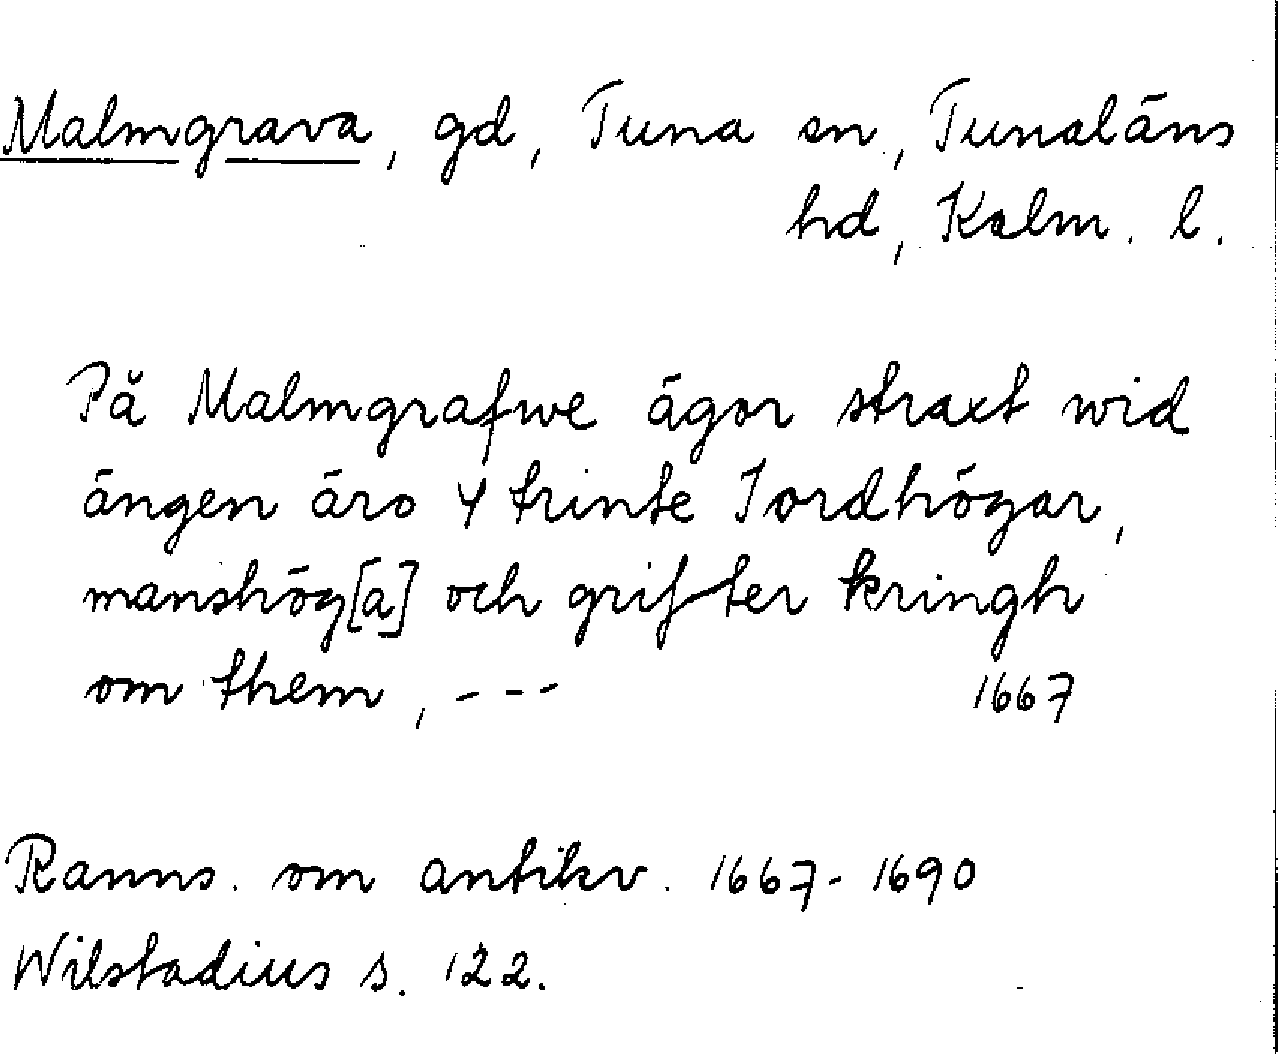 Malmgrava, gd, Tuna sn, Tunaläns
hd, Kalm. l.
På Malmgrafwe ägor straxt wid
ängen äro 4 trinte Jordhögar,
manshög[a] och grifter kringh
om them, ---
1667
Ranns. om antikv. 1667-1690
Wilstadius s. 122.